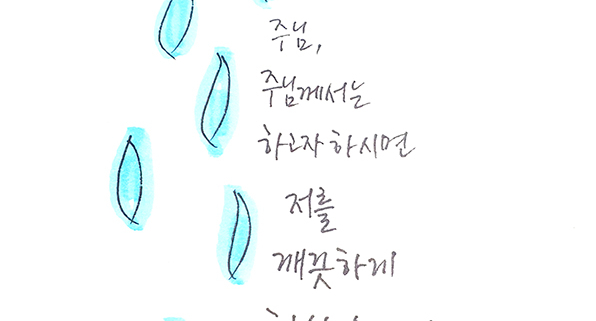 주님,
주님께서는
하고자 하시면
저를
깨끗하게